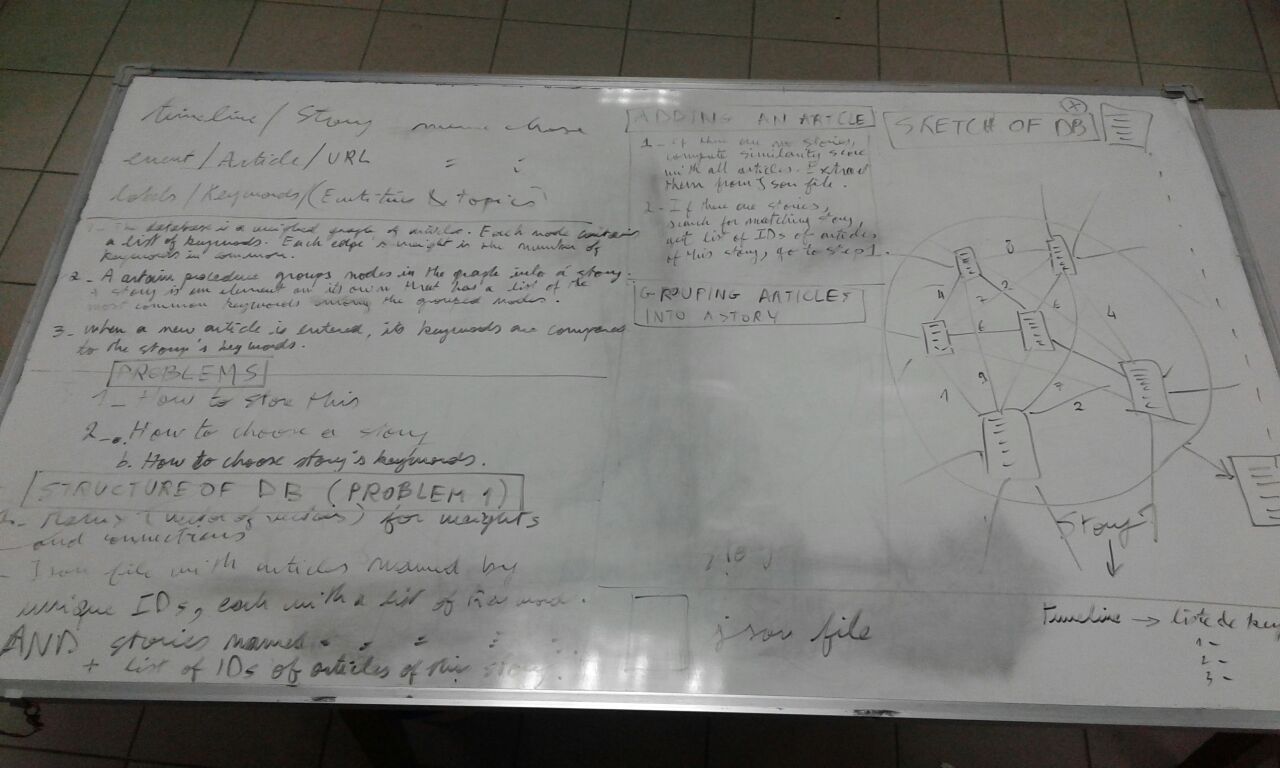 timeline / Story même chose
event / Article / URL = =
labels / Keywords / (Entities & topics)
1 - The database is a weighed graph of articles. Each node contains
a list of keywords. Each edge's weight is the number of
keywords in common.
2 - A certain procedure groups nodes in the graph into a story.
A story is an element on its own that has a list of the
most common keywords among the grouped nodes.
3 - When a new article is entered, its keywords are compared
to the story's keywords.
PROBLEMS
1 - How to store this
2 - a. How to choose a story
b. How to choose story's keywords.
STRUCTURE OF DB (PROBLEM 1)
Matrix (vector of vectors) for weights
and connections
- Json file with articles named by
unique IDs, each with a list of
AND stories named = = = =
+ list of IDs of articles of this story.
ADDING AN ARTICLE
1 - If there are no stories,
compute similarity score
with all articles. Extract
them from Json file.
2 - If there are stories,
search for matching story,
get list of IDs of articles
of this story, go to step 1.
GROUPING ARTICLES
INTO A STORY
json file
SKETCH OF DB
X
0
4
2
2
6
6
4
1
9
2
Story
timeline → liste de key
1 -
2 -
3 -